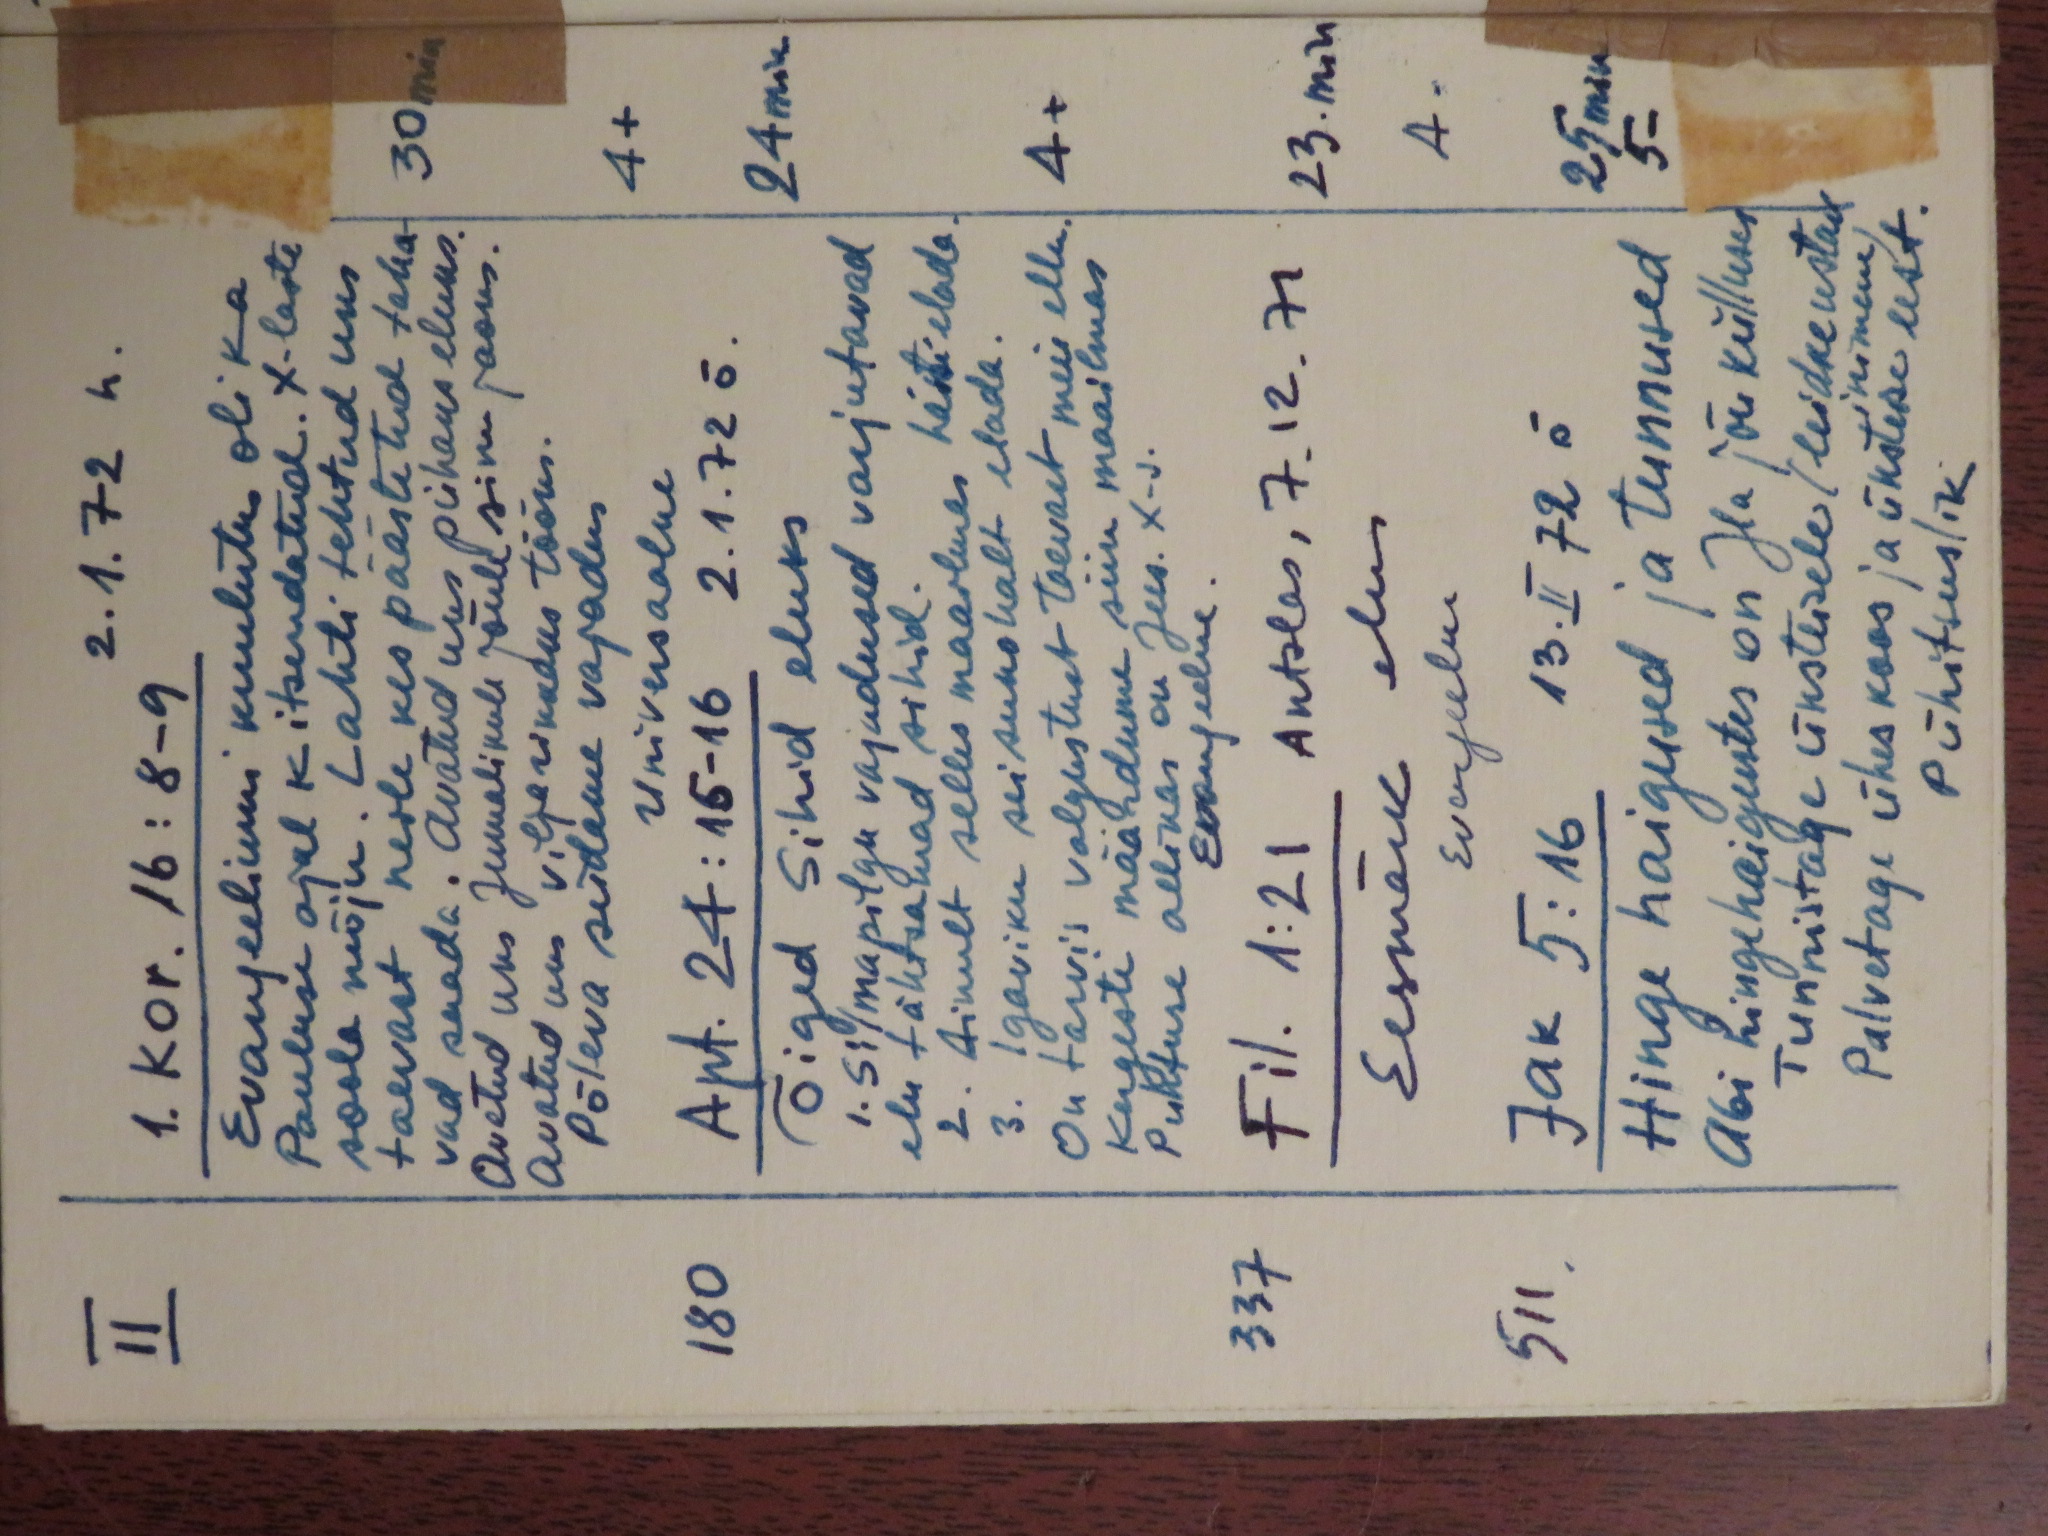 II
1. Kor. 16:8-9 2.1.72 h.
Evangeeliumi kuulutus oli ka
Pauluse ajal kitsendatud. X-laste
soola mõju. Lahti tehtud uus 30 min
taevast neile kes päästetud taha-
vad saada. Avatud uus pühaus elus.
Avatud uus Jumaliku jõule sinu jaoks.
Avatud uus viljarikkas töös.
Põleva südame vajadus 4+
Universaalne
180 Apt. 24:15-16 2.1.72 õ. 24 min
Õiged sihid eluks
1. Silmapilgu vajadused varjutavad
elu tähtsamad sihid.
2. Ainult selles maailmas hästi elada.
3. Igaviku seisukohalt elada.
On tarvis valgustust taevast meie ellu. 4+
Kergeste määrdume siin maailmas
Puhtuse allikas on Jees. X-s.
Evangeelne.
337 Fil. 1:21 Antslas, 7.12.71 23. min
Eesmärk elus
Evangeelne 4-
511. Jak 5:16 13.II 72 õ 25 min
5-
Hinge haigused ja tunnused
Abi hingehaigustes on Jla jõu külluses
Tunnistage üksteisele /leidke ustav
inimene/
Palvetage üheskoos ja üksteise eest.
Pühitsuslik